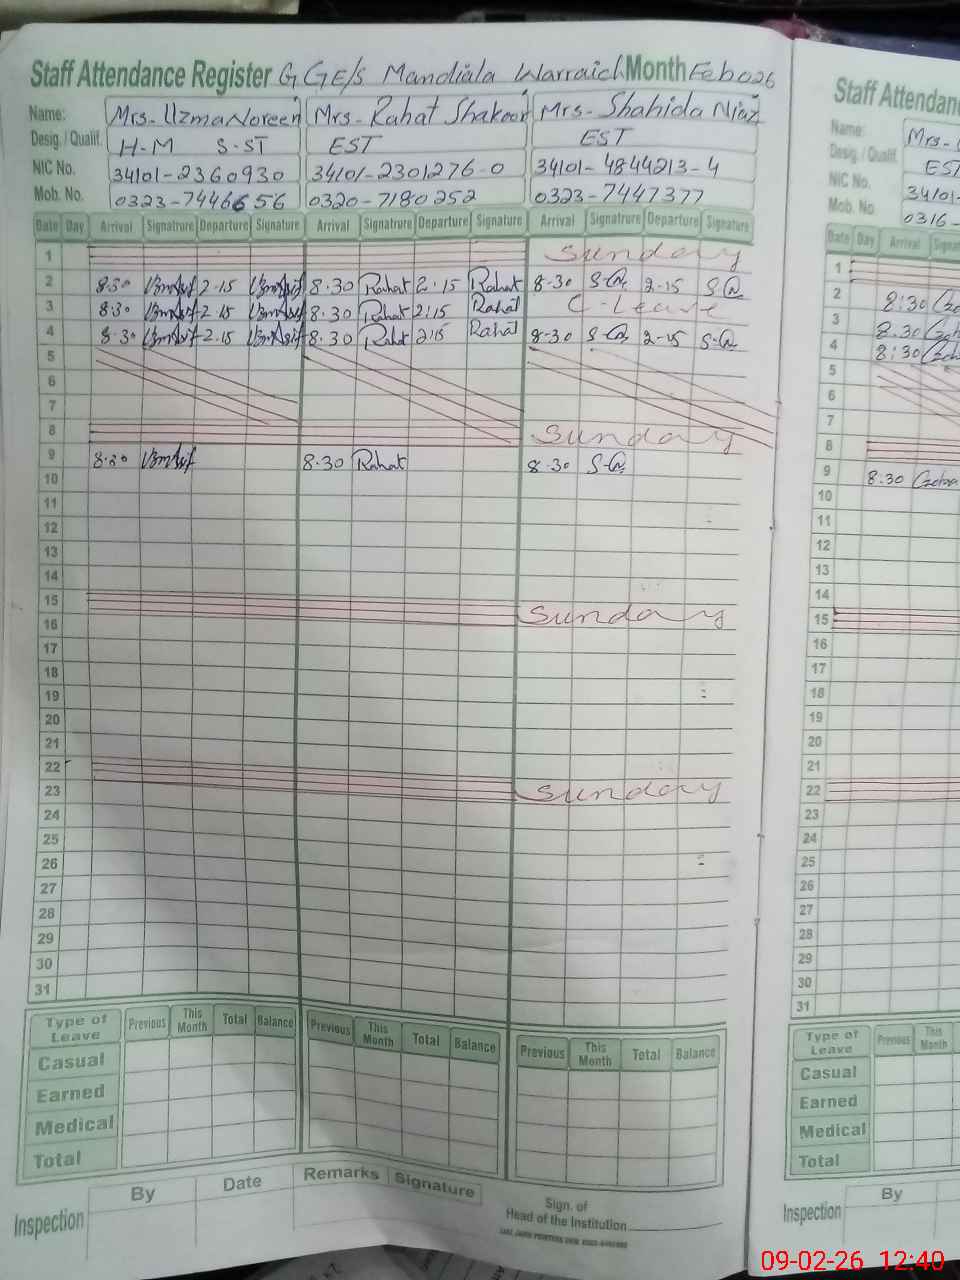 Staff Attendance Register GGE/S Mandiala Warraich Month Feb 026
Name: Mrs- Uzma Noreen Mrs- Rahat Shakoor Mrs- Shahida Niaz
Desig. / Qualif. H-M S-ST EST EST
NIC No. 34101-2360930 34101-2301276-0 34101-4844213-4
Mob. No. 0323-7446656 0320-7180252 0323-7447377
Date Day Arrival Signatrure Departure Signature Arrival Signatrure Departure Signature Arrival Signatrure Departure Signature
1 Sunday
2 8:30 2-15 8.30 Rahat 2:15 Rahat 8-30 2-15
3 8:30 2-15 8.30 Rahat 2:15 Rahat C-Leave
4 8.30 2-15 8.30 Rahat 2:15 Rahat 8-30 2-15
5
6
7
8 Sunday
9 8.30 8.30 Rahat 8-30
10
11
12
13
14
15 Sunday
16
17
18
19
20
21
22
23 Sunday
24
25
26
27
28
29
30
31
Type of Leave Previous This Month Total Balance Previous This Month Total Balance Previous This Month Total Balance
Casual
Earned
Medical
Total
Inspection By Date Remarks Signature
Sign. of
Head of the Institution
Staff Attendan
Name: Mrs-
Desig. / Qualif. EST
NIC No. 34101-
Mob. No. 0316-
Date Day Arrival
1
2 8:30
3 8.30
4 8:30
5
6
7
8
9 8.30
10
11
12
13
14
15
16
17
18
19
20
21
22
23
24
25
26
27
28
29
30
31
Type of Leave Previous This Month
Casual
Earned
Medical
Total
Inspection By
09-02-26 12:40